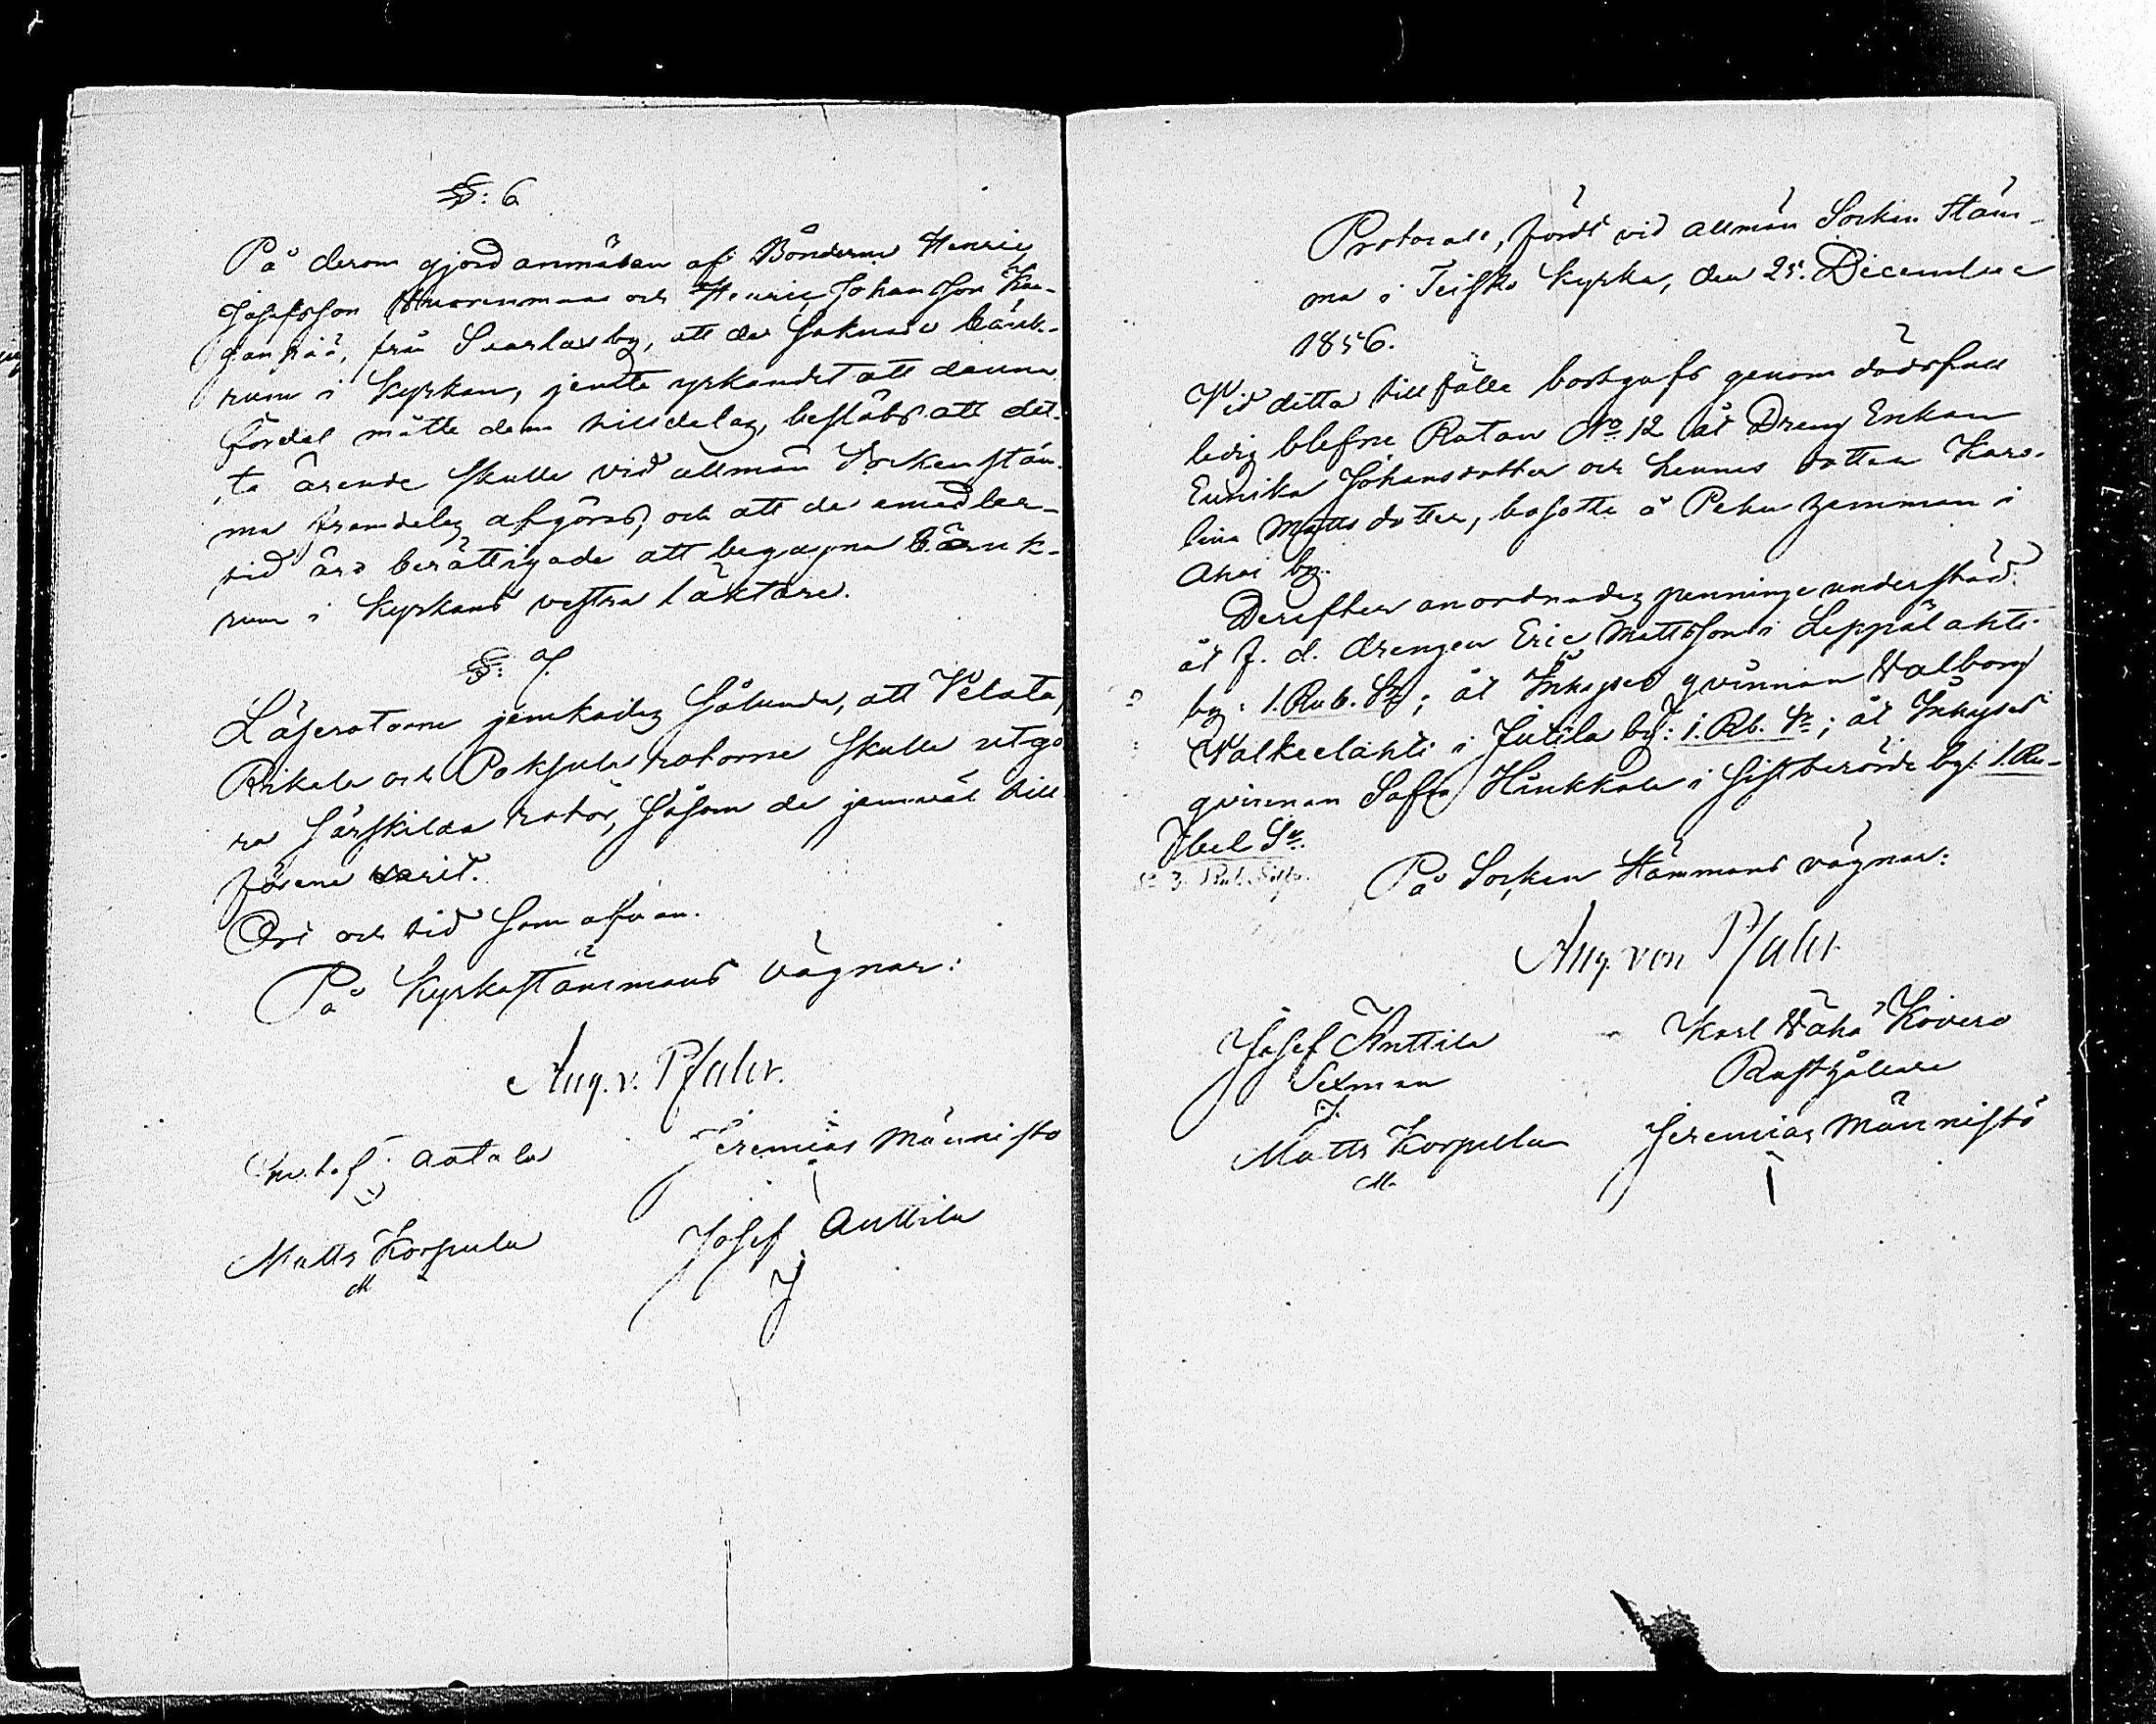 §: 6
På derom gjord anmälan af Bönderne Henric
Josefsson och Henric Johansson
från by, att de saknade bänk-
rum i Kyrkan, jemte yrkandet att denna
fördel måtte dem tilldelas, beslöts att det-
ta ärende skulle vid allmän Sockenstäm-
ma framdeles afgöras, och att de emedler-
tid äro berättigade att begagna bänk-
rum i Kyrkans vestra läktare.
§: 7.
Läserotorne jemkades sålunda, att Velata,
och Poksula rotorne skulle utgö-
ra särskilda rotor, såsom de jemväl till
förene varit.
Ort och tid som ofvan.
På Kyrkostämmans vägnar:
Aug. v. Pfaler.
Aatala Jeremias Männistö
Matts Korpula Josef Anttila
M J
Protocoll, fördt vid allmän Socken Stäm-
ma i Teisko Kyrka, den 25. December
1856.
Vid detta tillfälle bortgafs genom dödsfall
ledig blefne Rotan No 12 åt Dreng Enkan
Eunika Johansdotter och hennes dotter Karo-
lina Mattsdotter, bosatte å Pehu hemman i
by.
Derefter anordnades penninge understöd:
åt f. d. drengen Eric Mattsson i Leppälahti
by: 1. Rub. Sr; åt Inhyses qvinnan Valborg
Valkeelahti i Jutila by: 1. Rb. Sr; åt Inhyses
qvinnan Sofia Hinkkala i by: 1. Ru-
bel Sr.
Sa 3. Rub. Silfr.
På Socken Stämmans vägnar:
Aug. von Pfaler
Josef Anttila Karl Wäha Kovero
Sexman Rusthållare
J.
Matts Korpula Jeremias Männistö
M.